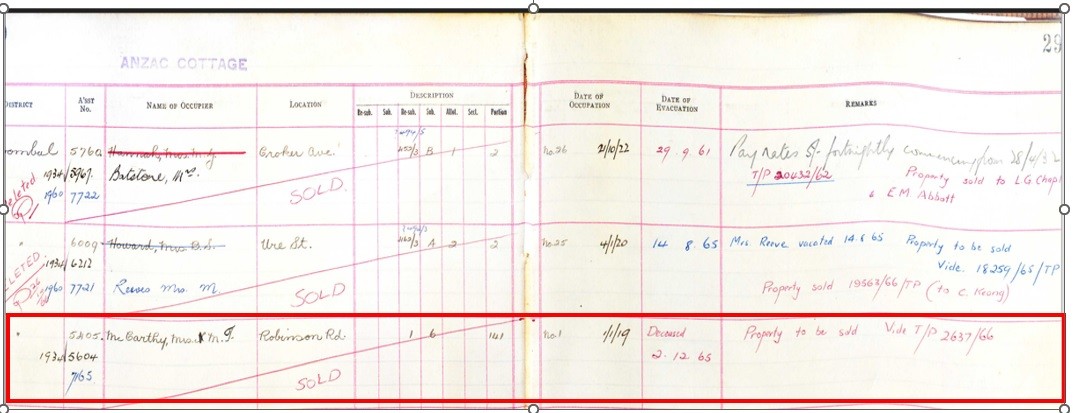 29
ANZAC COTTAGE
DISTRICT A'SST No. NAME OF OCCUPIER LOCATION DESCRIPTION DATE OF OCCUPATION DATE OF EVACUATION REMARKS
Re-sub. Sub. Re-sub. Sub. Allot. Sect. Portion
5760 Hannah, Mrs. M. J. Croker Ave. B 1 2 No. 26 21/10/22 29. 9. 61 Pay rates 5/- fortnightly commencing from 28/4/32
1934/5967. Batstone, Mrs. T/P 20432/62 Property sold to L G Chap
1960 7722 SOLD. & E M Abbott
deleted
" 6009 Howard, Mrs B. S. Ure St. A 2 2 No. 25 4/1/20 14 8 65 Mrs. Reeve vacated 14.8.65 Property to be sold
1934/6212 Vide. 18259/65/TP
1960 7721 Reeves Mrs. M. SOLD Property sold 19563/66/TP (to C. Keong)
LETED
" 5405. McCarthy, Mrs. M. F. Robinson Rd. 1 6 141 No. 1 1/1/19 Deceased Property to be sold Vide T/P 2637/66
1934/5604 2. 12. 65
7165 SOLD